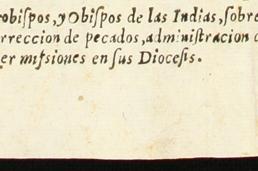 obiſpos, y Obiſpos de las Indias, ſobre
rreccion de pecados, adminiſtracion d
er miſsiones en ſus Dioceſis.